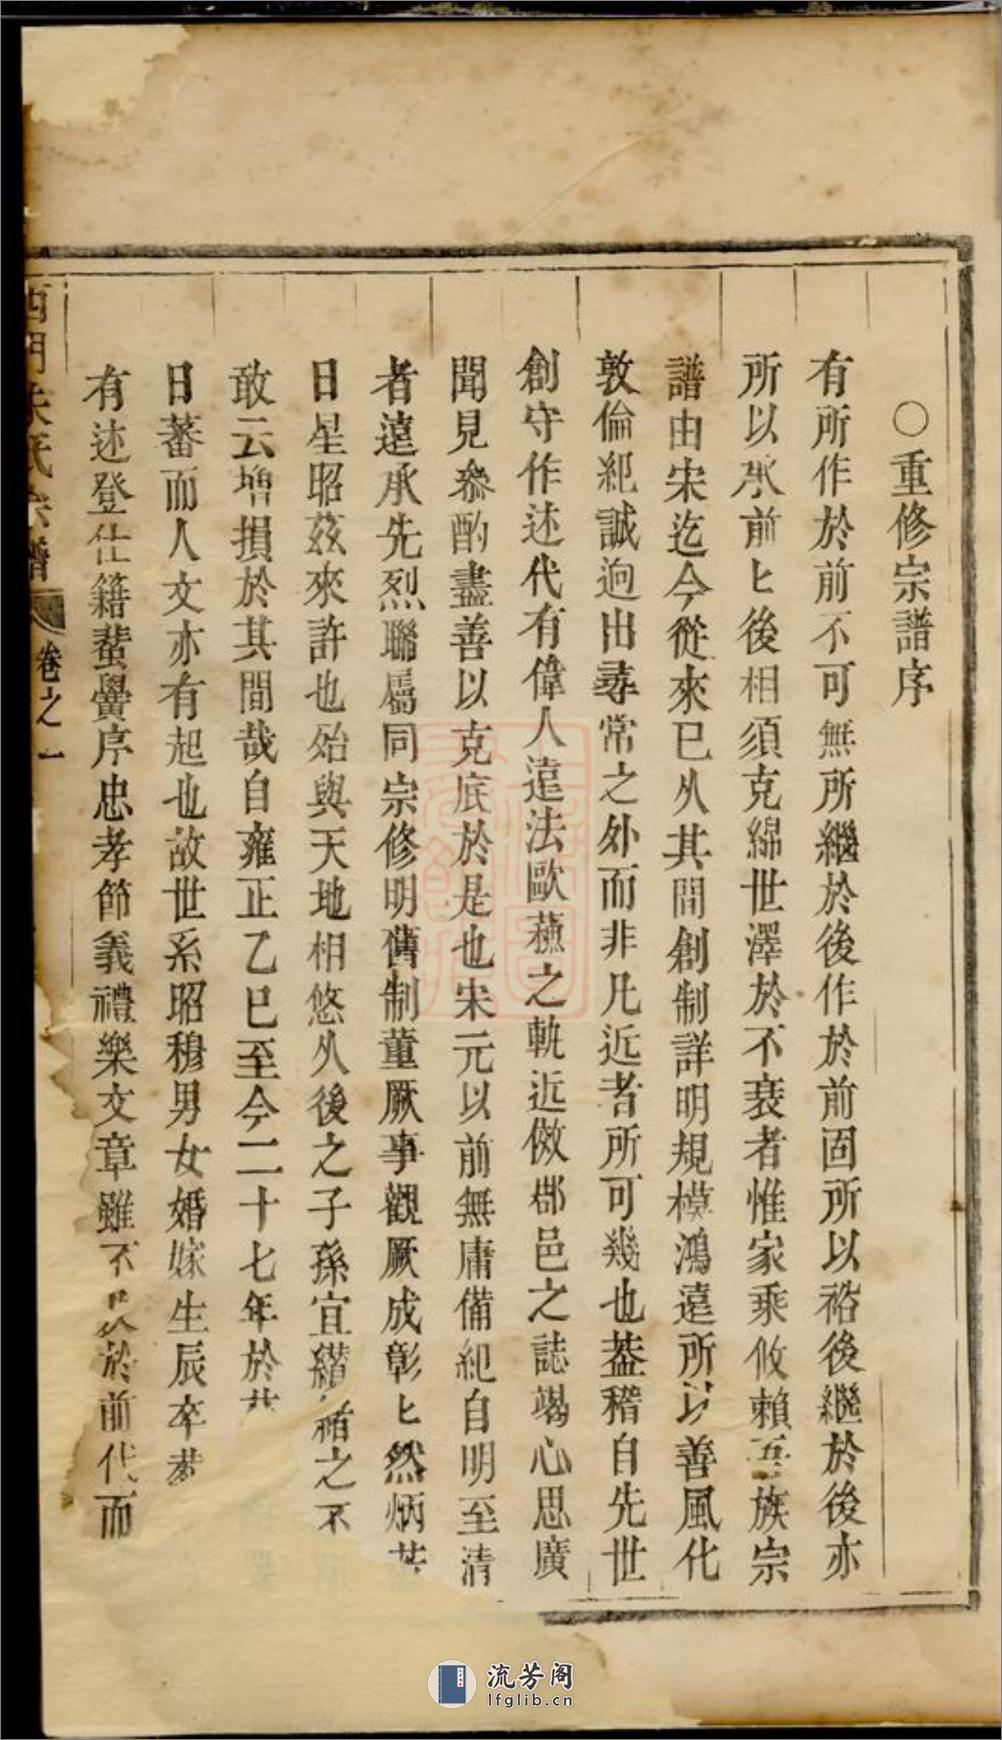 ○重修宗譜序
有所作於前不可無所繼於後作於前固所以裕後繼於後亦
所以承前匕後相須克綿世澤於不衰者惟家乘攸賴吾族宗
譜由宋迄今從來已久其間創制詳明規模鴻遠所以善風化
敦倫紀誠逈出尋常之外而非凡近者所可幾也葢稽自先世
創守作述代有偉人遠法歐蘓之軌近倣郡邑之誌竭心思廣
聞見叅酌盡善以克底於是也宋元以前無庸備紀自明至清
者遠承先烈聯屬同宗修明舊制董厥事觀厥成彰匕然炳若
日星昭茲來許也始與天地相悠久後之子孫宜繕緒之不
敢云增損於其間哉自雍正乙巳至今二十七年於茲
日蕃而人文亦有起也故世系昭穆男女婚嫁生辰卒葬
有述登仕籍蜚黌序忠孝節義禮樂文章雖不及於前代而
西門朱氏宗譜 卷之一
流芳阁
lfglib.cn